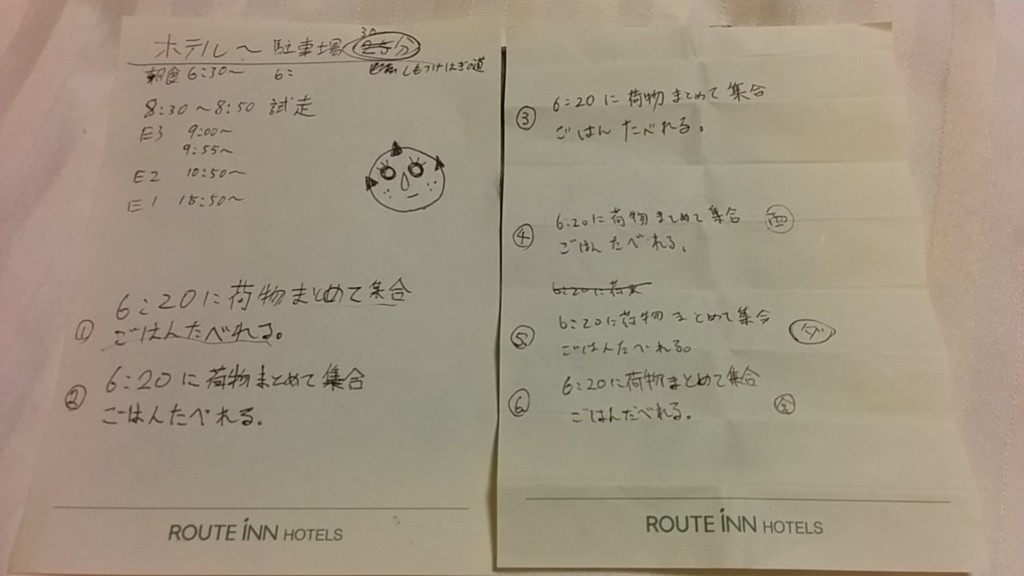 ホテル〜 駐車場 30分
朝食 6:30〜 6:
しもつけはぎの道
8:30〜8:50 試走
E3 9:00〜
9:55〜
E2 10:50〜
E1 15:50〜
① 6:20に荷物まとめて集合
ごはんたべれる。
② 6:20に荷物まとめて集合
ごはんたべれる.
ROUTE INN HOTELS
③ 6:20に荷物まとめて集合
ごはんたべれる。
④ 6:20に荷物まとめて集合
ごはんたべれる、
6:20に荷
⑤ 6:20に荷物まとめて集合 ダ
ごはんたべれる。
⑥ 6:20に荷物まとめて集合
ごはんたべれる. 全
ROUTE INN HOTELS